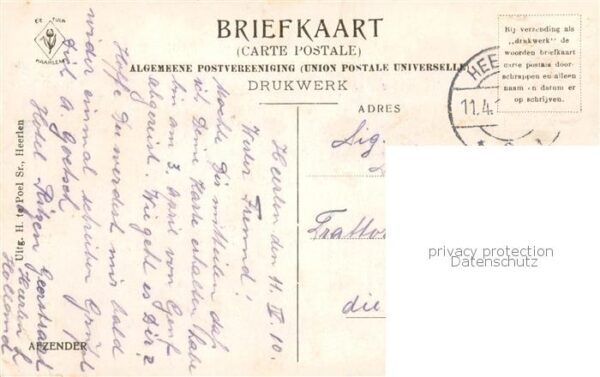 DE TULP
HAARLEM
BRIEFKAART
(CARTE POSTALE)
ALGEMEENE POSTVEREENIGING (UNION POSTALE UNIVERSELLE)
DRUKWERK
Bij verzending als
„drukwerk" de
woorden briefkaart
carte postale door-
schrappen en alleen
naam en datum er
op schrijven.
HEE
11.4.
ADRES
Sig.
Tratto
die
Heerlen den 11. IV. 10.
Werter Freund!
Möchte Dir mitteilen daß
ich deine Karte erhalten habe
bin am 3. April von Genf
abgereist. Wie geht es Dir?
Hoffe Du werdest mir bald
wieder einmal schreiben
Dich A. Goetsch
Hotel
Geerstraat
Heerlen
Holland
Uitg. H. te Poel Sr., Heerlen
AFZENDER
privacy protection
Datenschutz